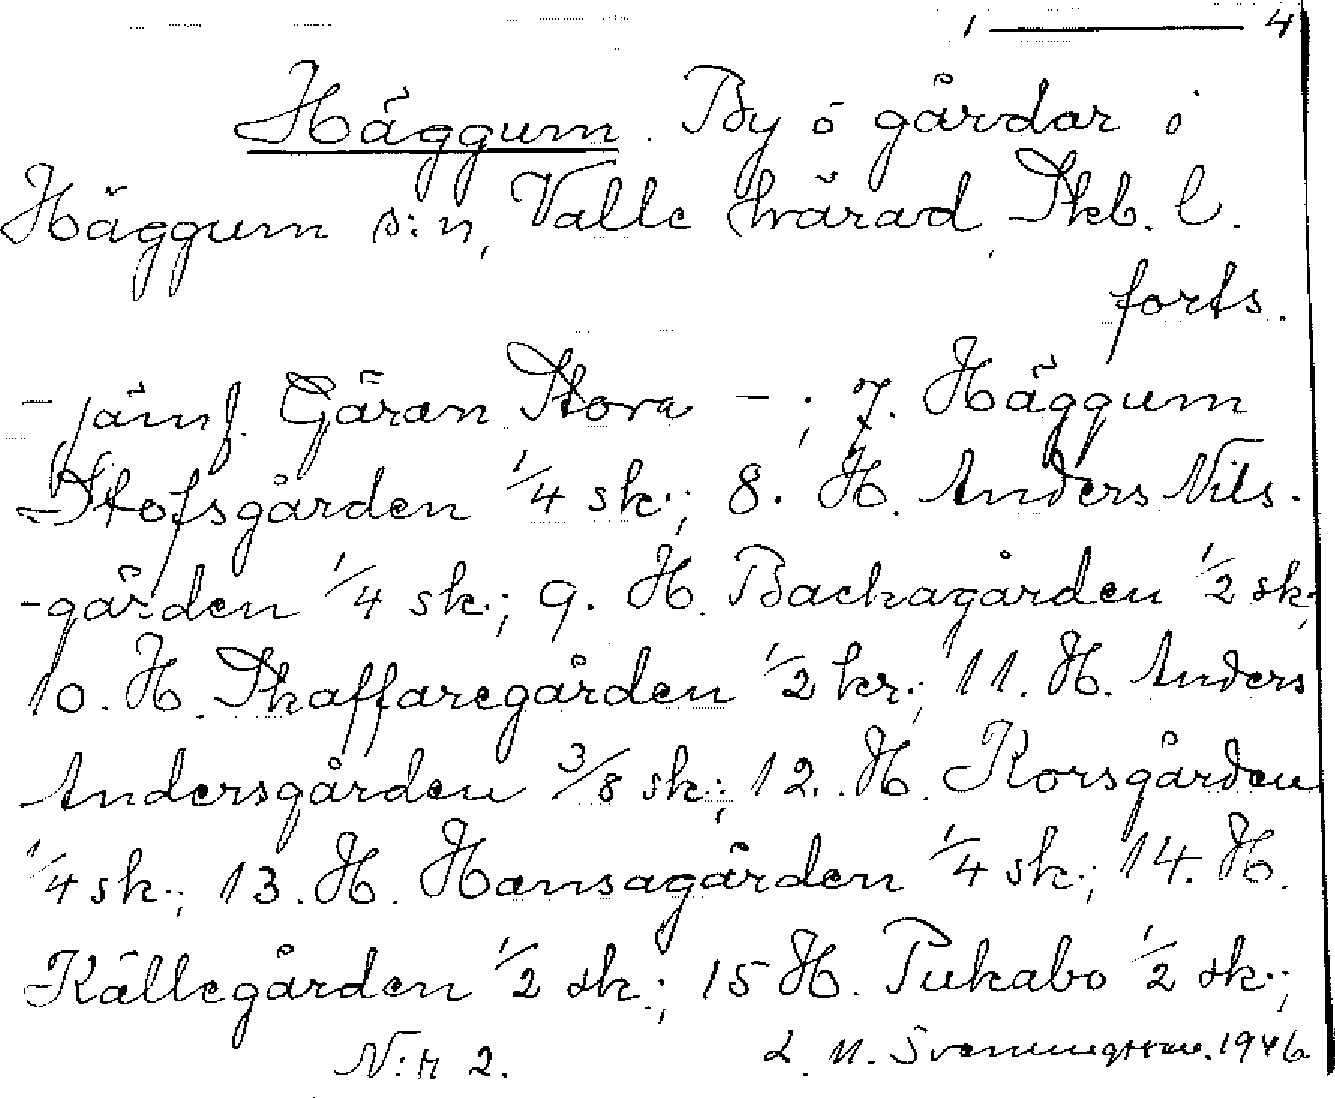 1 — 4
Häggum. By o gårdar i
Häggum s:n, Valle härad, Skb. l.
forts.
- jämf. Gären Stora - ; 7. Häggum
Stofsgården 1/4 sk.; 8. H. Anders Nils-
-gården 1/4 sk.; 9. H. Backagården 1/2 sk;
10. H. Skaffaregården 1/2 kr.; 11. H. Anders
Andersgården 3/8 sk.; 12. H. Korsgården
1/4 sk.; 13. H. Hansagården 1/4 sk.; 14. H.
Källegården 1/2 sk.; 15 H. Pukabo 1/2 sk.;
N:r 2. L. M. Svenungsson. 1946